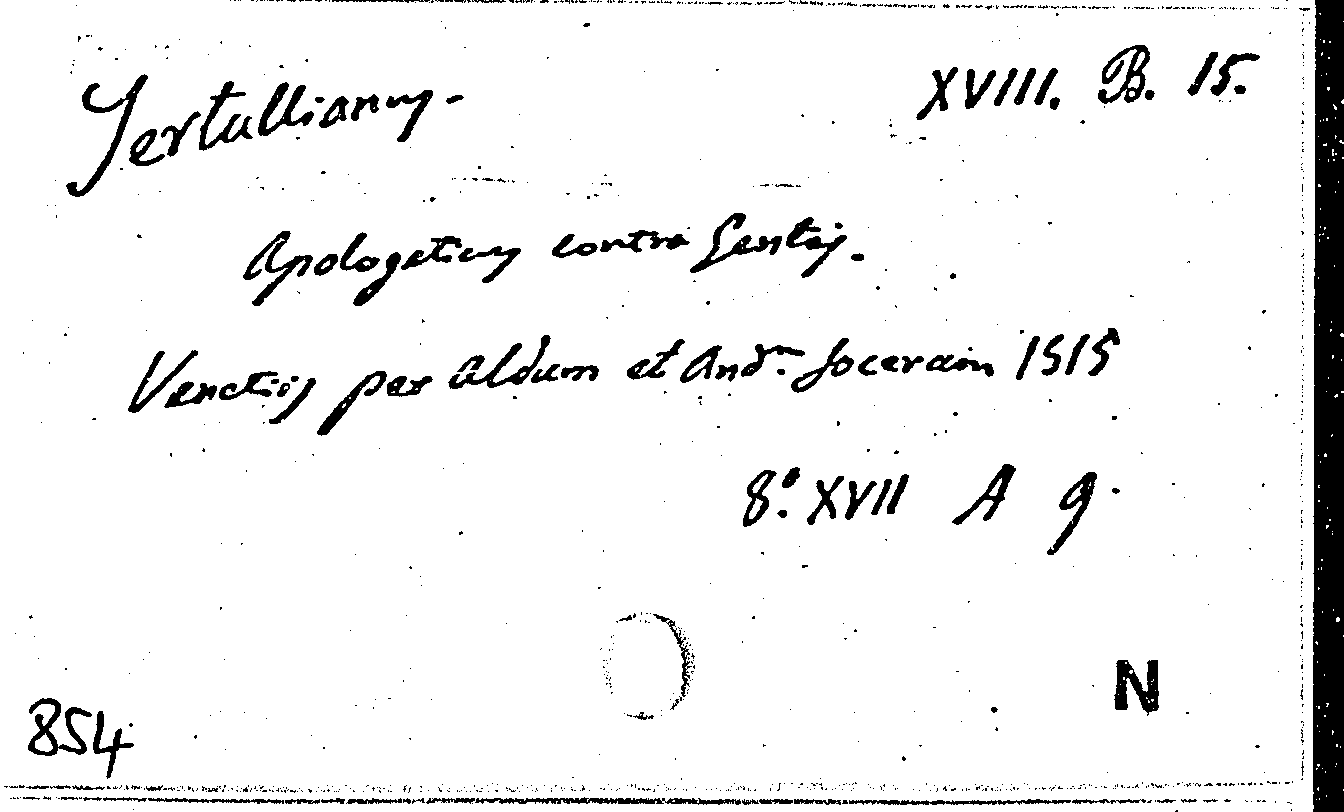 Tertullianus. XVIII. B. 15.
Apologeticus contra Gentes.
Venetiis per Aldum et Andm. Socerum 1515
8º. XVII A 9.
N
854